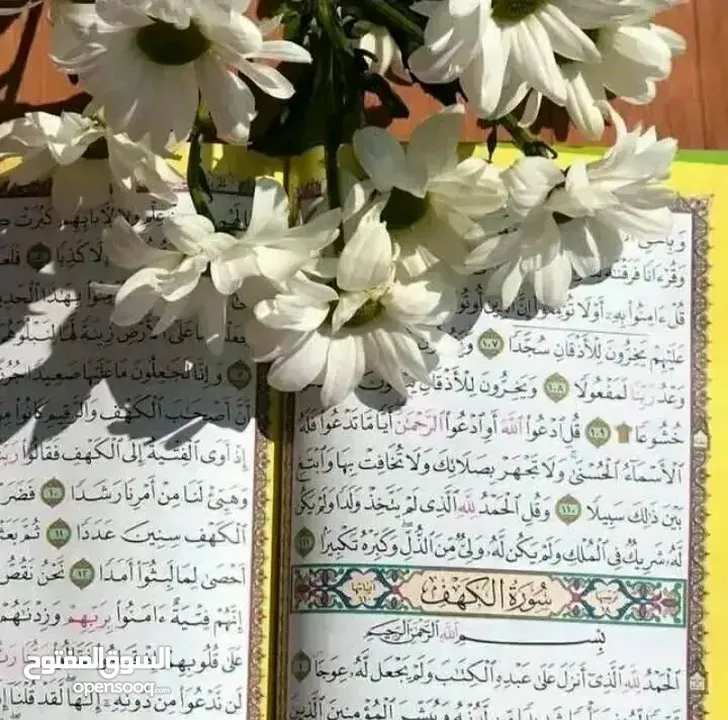 وَقُرْءَانًا فَرَقْنَـٰهُ
قُلْ ءَامِنُوا۟ بِهِۦٓ أَوْ لَا تُؤْمِنُوٓا۟ إِنَّ ٱلَّذِينَ أُوتُوا۟
عَلَيْهِمْ يَخِرُّونَ لِلْأَذْقَانِ سُجَّدًا ١٠٧
وَعْدُ رَبِّنَا لَمَفْعُولًا ١٠٨ وَيَخِرُّونَ لِلْأَذْقَانِ
خُشُوعًا ۩ ١٠٩ قُلِ ٱدْعُوا۟ ٱللَّهَ أَوِ ٱدْعُوا۟ ٱلرَّحْمَـٰنَ أَيًّا مَّا تَدْعُوا۟ فَلَهُ
ٱلْأَسْمَآءُ ٱلْحُسْنَىٰ وَلَا تَجْهَرْ بِصَلَاتِكَ وَلَا تُخَافِتْ بِهَا وَٱبْتَغِ
بَيْنَ ذَٰلِكَ سَبِيلًا ١١٠ وَقُلِ ٱلْحَمْدُ لِلَّهِ ٱلَّذِى لَمْ يَتَّخِذْ وَلَدًا وَلَمْ يَكُن
لَّهُۥ شَرِيكٌ فِى ٱلْمُلْكِ وَلَمْ يَكُن لَّهُۥ وَلِىٌّ مِّنَ ٱلذُّلِّ وَكَبِّرْهُ تَكْبِيرًۢا ١١١
سُورَةُ الكَهْفِ
بِسْمِ ٱللَّهِ ٱلرَّحْمَـٰنِ ٱلرَّحِيمِ
ٱلْحَمْدُ لِلَّهِ ٱلَّذِىٓ أَنزَلَ عَلَىٰ عَبْدِهِ ٱلْكِتَـٰبَ وَلَمْ يَجْعَل لَّهُۥ عِوَجَا ١
وَيُبَشِّرَ ٱلْمُؤْمِنِينَ ٱلَّذِينَ
عِلْمٍ وَلَا لِـَٔابَآئِهِمْ كَبُرَتْ
إِلَّا كَذِبًا ٥ فَلَعَلَّ
بِهَـٰذَا ٱلْحَدِيثِ
مَا عَلَى ٱلْأَرْضِ زِينَةً لَّهَا لِنَبْلُوَهُمْ
وَإِنَّا لَجَـٰعِلُونَ مَا عَلَيْهَا صَعِيدًا جُرُزًا
أَنَّ أَصْحَـٰبَ ٱلْكَهْفِ وَٱلرَّقِيمِ كَانُوا۟ مِنْ
إِذْ أَوَى ٱلْفِتْيَةُ إِلَى ٱلْكَهْفِ فَقَالُوا۟ رَبَّنَآ
وَهَيِّئْ لَنَا مِنْ أَمْرِنَا رَشَدًا ١٠ فَضَرَبْنَا
ٱلْكَهْفِ سِنِينَ عَدَدًا ١١ ثُمَّ بَعَثْنَـٰهُمْ
أَحْصَىٰ لِمَا لَبِثُوٓا۟ أَمَدًا ١٢ نَّحْنُ نَقُصُّ
إِنَّهُمْ فِتْيَةٌ ءَامَنُوا۟ بِرَبِّهِمْ وَزِدْنَـٰهُمْ
عَلَىٰ قُلُوبِهِمْ
لَن نَّدْعُوَا۟ مِن دُونِهِۦٓ إِلَـٰهًا لَّقَدْ قُلْنَآ إِذًا
السوق المفتوح
opensooq.com